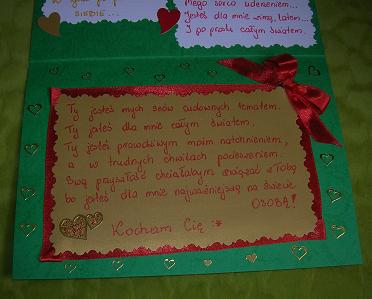 SIEBIE...
Mego serca uderzeniem...
Jesteś dla mnie zimą, latem...
I po prostu całym światem.
Ty jesteś mych snów cudownych tematem.
Ty jesteś dla mnie całym światem,
Ty jesteś prawdziwym moim natchnieniem,
a w trudnych chwilach pocieszeniem.
Swą przyszłość chciałabym związać z Tobą
bo jesteś dla mnie najważniejszą na świecie
OSOBĄ!
Kocham Cię :*